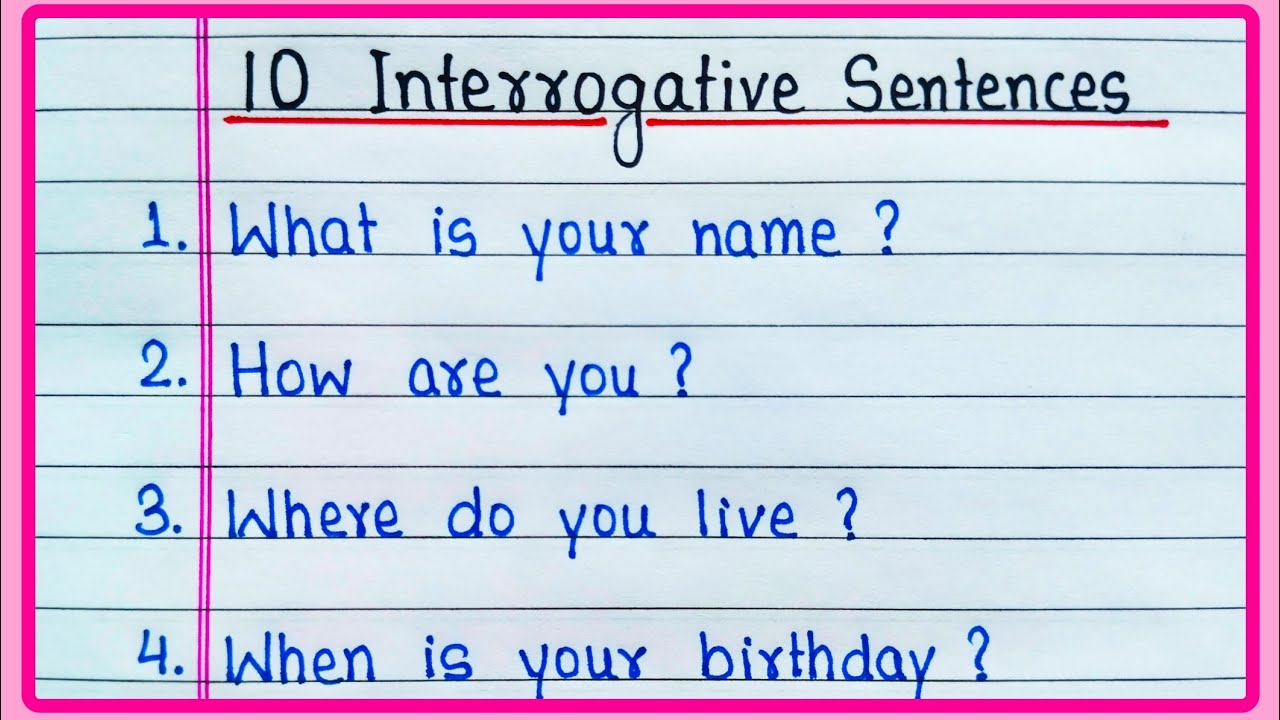 10 Interrogative Sentences
1. What is your name ?
2. How are you ?
3. Where do you live ?
4. When is your birthday ?